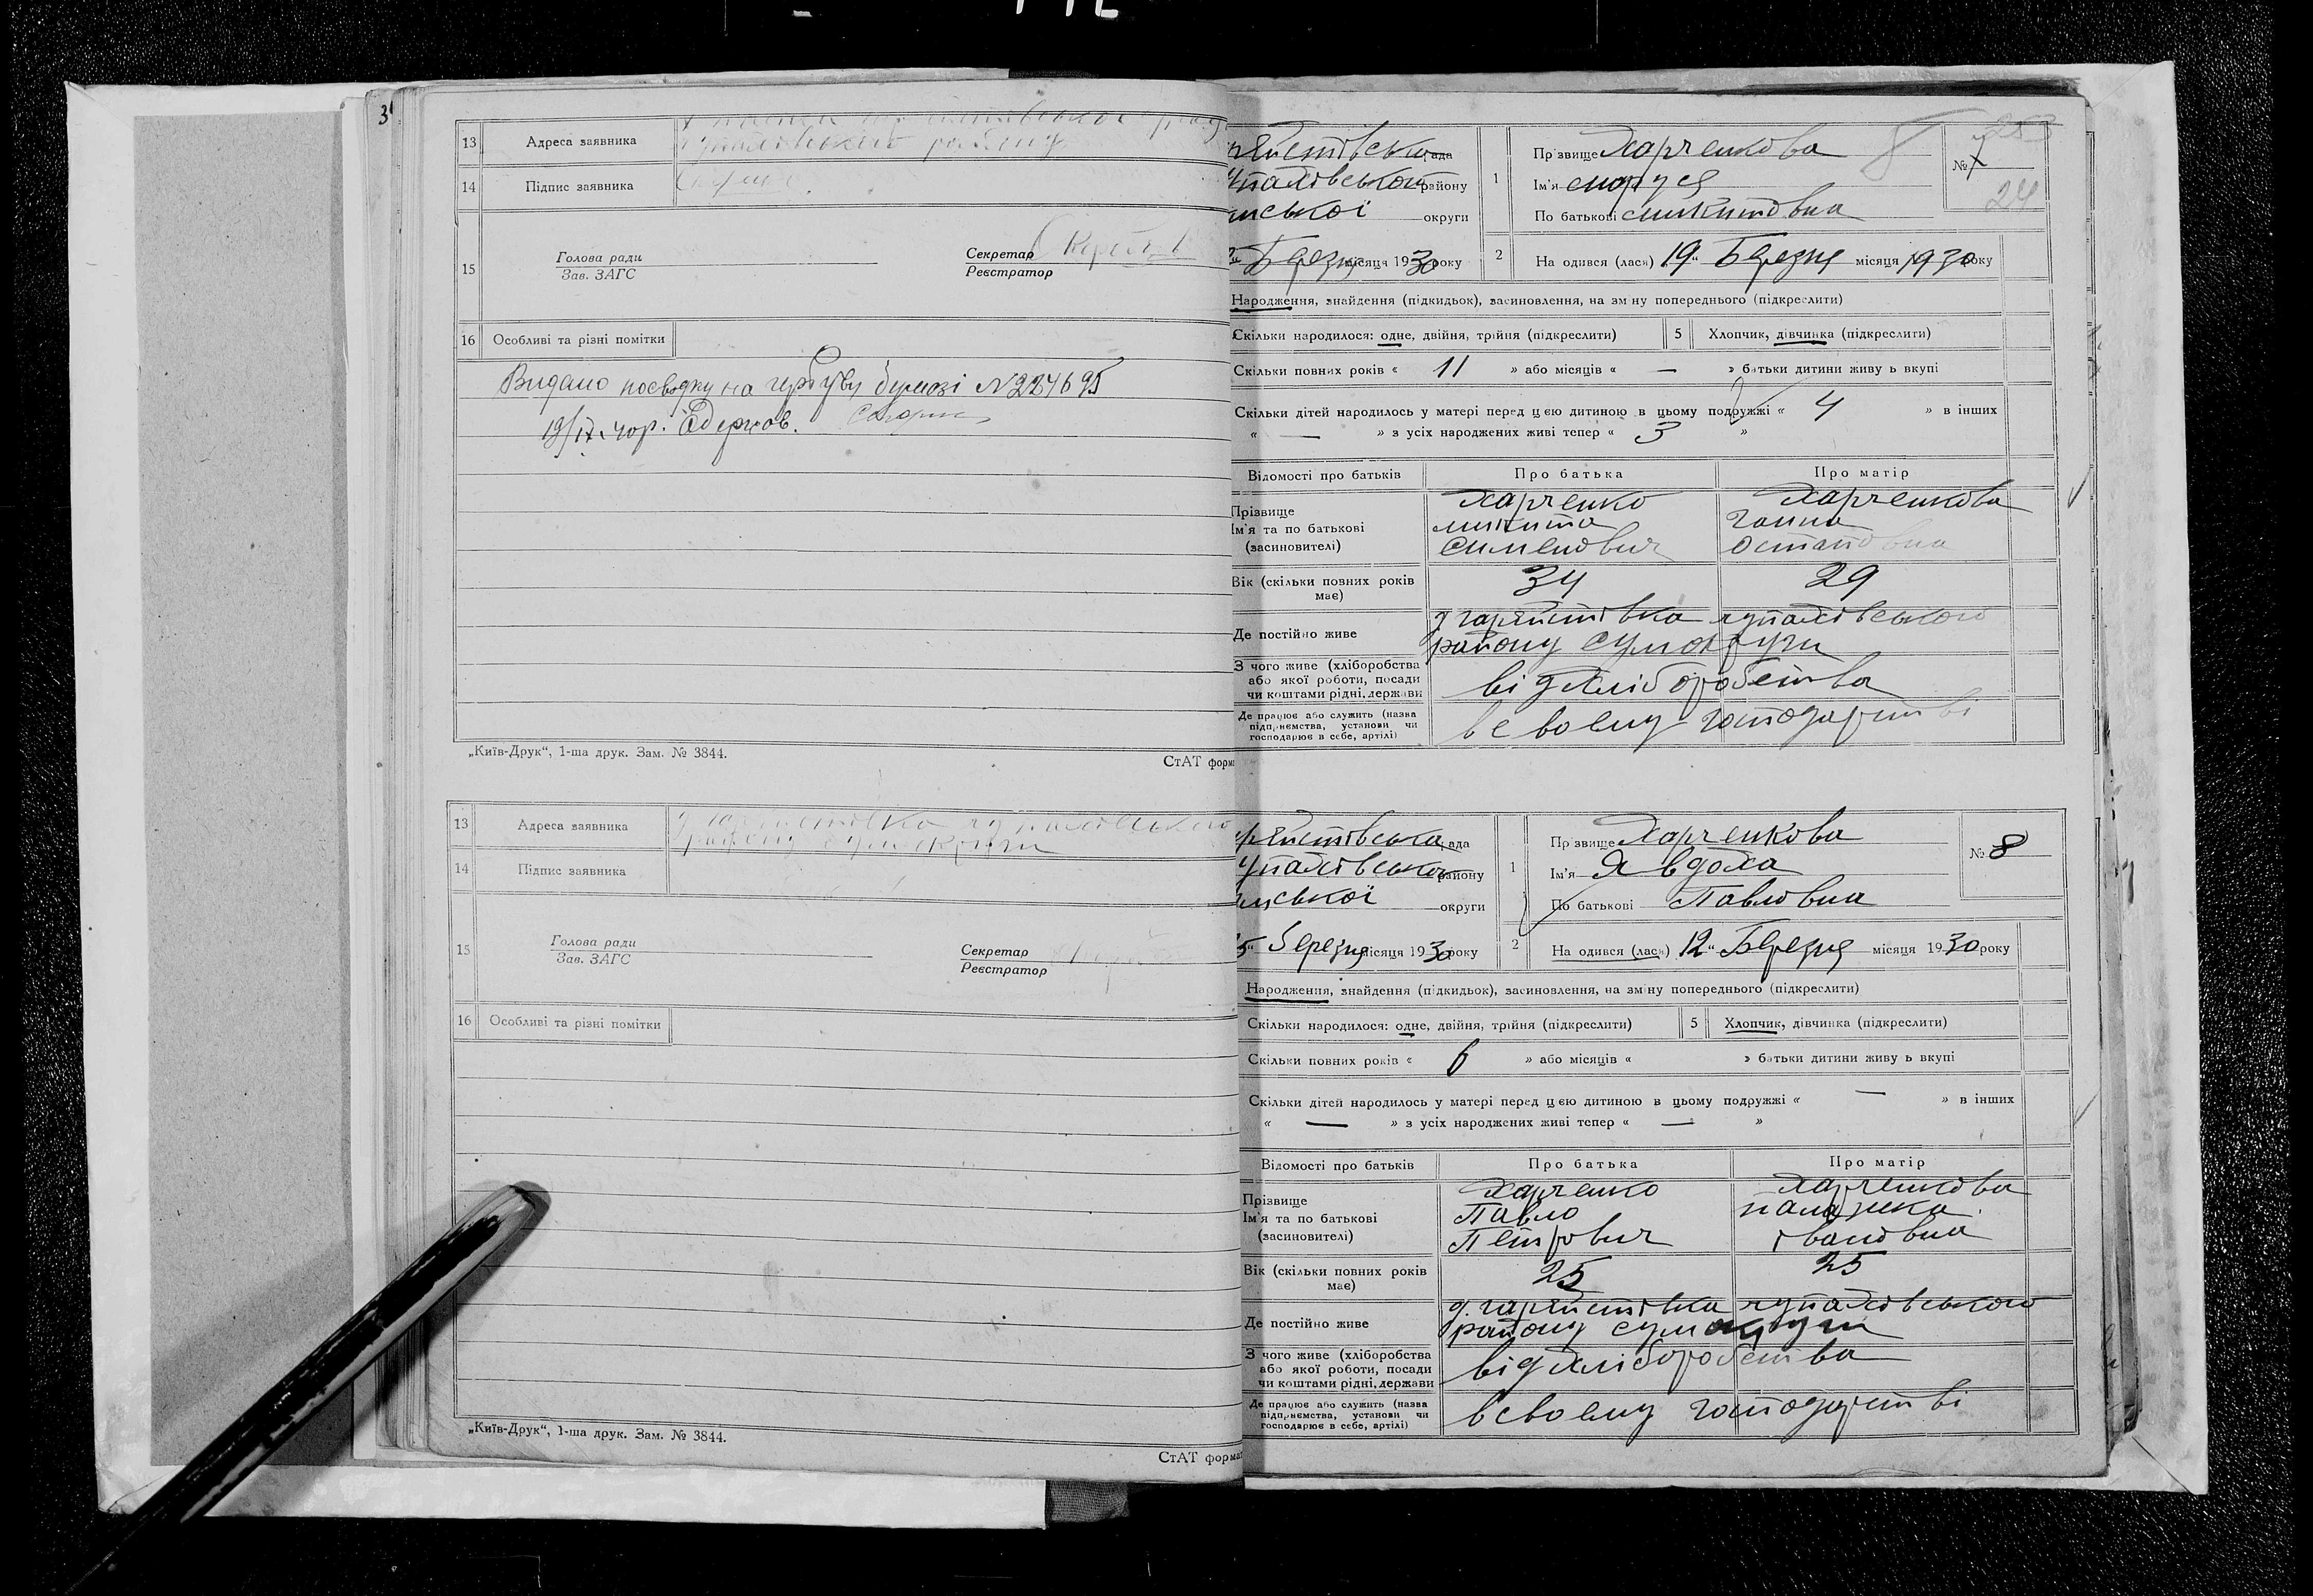 3
13 Адреса заявника
району
14 Підпис заявника
15 Голова ради
Зав. ЗАГС
Секретар
Реєстратор
16 Особливі та різні помітки
Видано посвідку на гербову бумазі N 224695
19/IX
„Київ-Друк“, 1-ша друк. Зам. № 3844.
СтАТ форм
13 Адреса заявника
району сумокруги
14 Підпис заявника
15 Голова ради
Зав. ЗАГС
Секретар
Реєстратор
16 Особливі та різні помітки
„Київ-Друк“, 1-ша друк. Зам. № 3844.
СтАТ форма
ада
району
ської округи
Березня місяця 1930 року
1 Прізвище Харченкова
Ім'я Маруся
По батькові Микитовна
№ 7
24
2 На одився (лася) „19“ Березня місяця 1930 року
Народження, знайдення (підкидьок), засиновлення, на зміну попереднього (підкреслити)
Скільки народилося: одне, двійня, трійня (підкреслити) 5 Хлопчик, дівчинка (підкреслити)
Скільки повних років « 11 » або місяців « — » батьки дитини живуть вкупі
Скільки дітей народилось у матері перед цією дитиною в цьому подружжі « 4 » в інших
« — » з усіх народжених живі тепер « 3 »
Відомості про батьків Про батька Про матір
Прізвище Харченко Харченкова
Ім'я та по батькові Микита Ганна
(засиновителі) Сименович Остаповна
Вік (скільки повних років має) 34 29
Де постійно живе
району Сумокруги
З чого живе (хліборобства або якої роботи, посади чи коштами рідні, держави від хліборобства
Де працює або служить (назва підприємства, установи чи господарює в себе, артілі) в своему господарстві
ада
району
ської округи
Березня місяця 1930 року
1 Прізвище Харченкова
Ім'я Явдоха
По батькові Павловна
№ 8
2 На одився (лася) 12“ Березня місяця 1930 року
Народження, знайдення (підкидьок), засиновлення, на зміну попереднього (підкреслити)
Скільки народилося: одне, двійня, трійня (підкреслити) 5 Хлопчик, дівчинка (підкреслити)
Скільки повних років « 6 » або місяців « » батьки дитини живуть вкупі
Скільки дітей народилось у матері перед цією дитиною в цьому подружжі « — » в інших
« — » з усіх народжених живі тепер « — »
Відомості про батьків Про батька Про матір
Прізвище Харченко Харченкова
Ім'я та по батькові Павло Палажка
(засиновителі) Петрович Івановна
Вік (скільки повних років має) 25 25
Де постійно живе
району
З чого живе (хліборобства або якої роботи, посади чи коштами рідні, держави від хліборобства
Де працює або служить (назва підприємства, установи чи господарює в себе, артілі) в своему господарстві